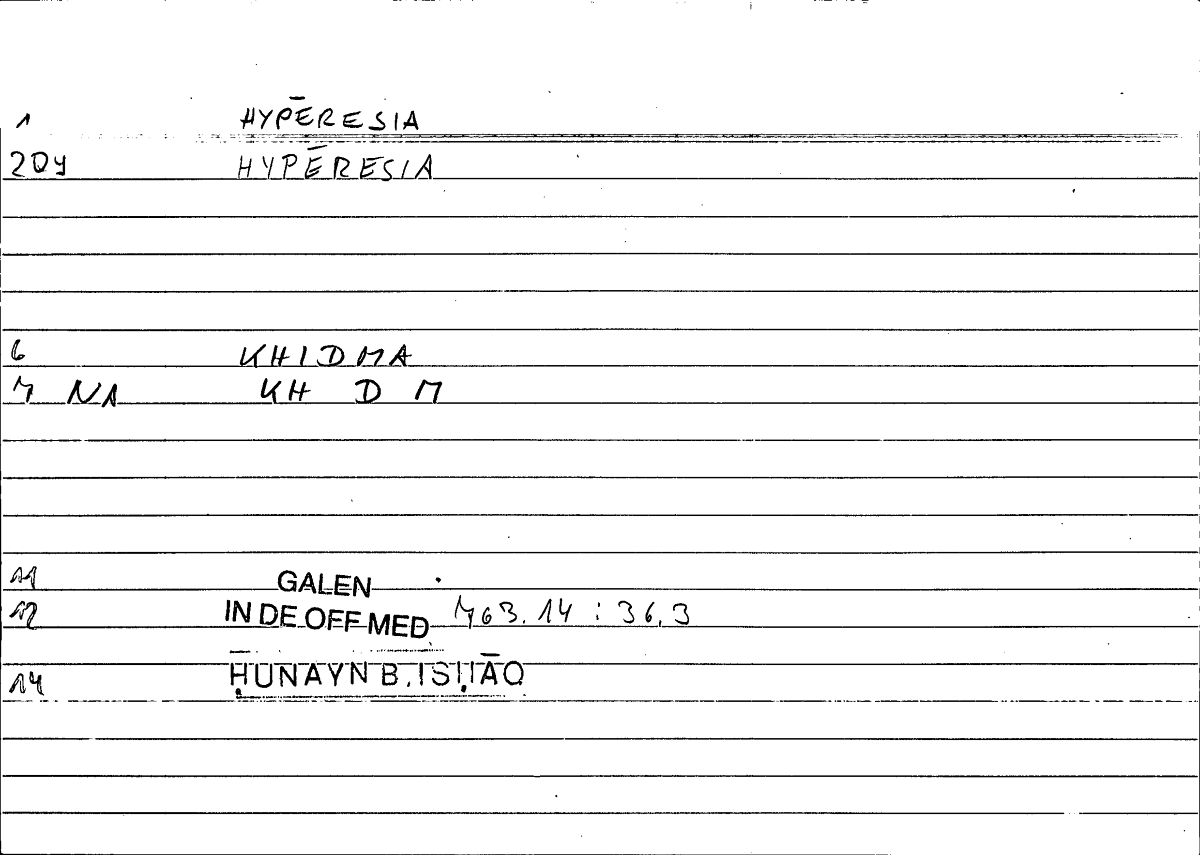 1 HYPĒRESIA
20y HYPĒRESIA
6 KHIDMA
7 NA KH D M
11 GALEN
12 IN DE OFF MED 763.14 : 36,3
14 ḤUNAYN B. ISḤĀQ